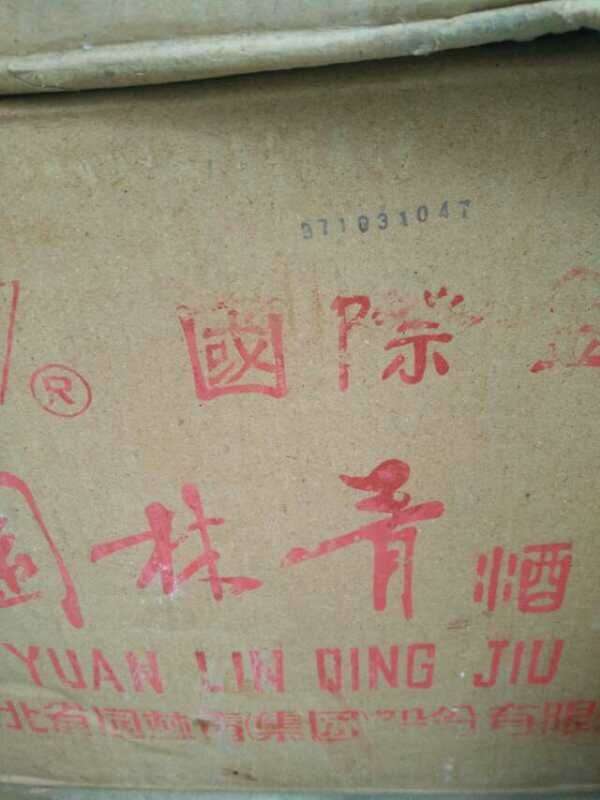 971031047
® 國際金
園林青酒
YUAN LIN QING JIU
北省園林青(集团)股份有限